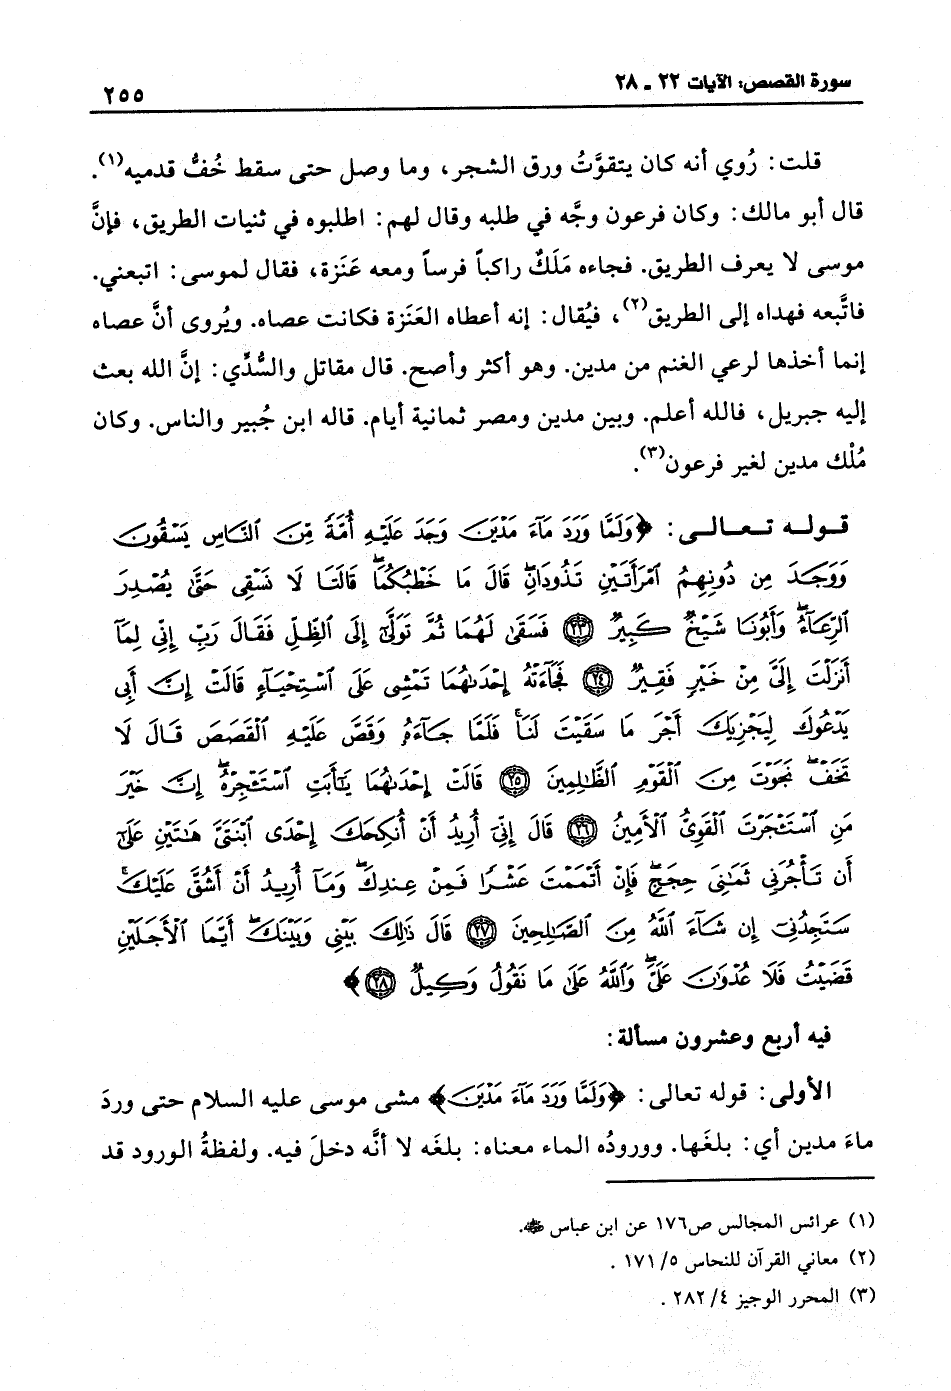 سورة القصص: الآيات ٢٢ ـ ٢٨
٢٥٥
قلت: رُوي أنه كان يتقوَّتُ ورق الشجر، وما وصل حتى سقط خُفُّ قدميه(١).
قال أبو مالك: وكان فرعون وجَّه في طلبه وقال لهم: اطلبوه في ثنيات الطريق، فإنَّ
موسى لا يعرف الطريق. فجاءه مَلَكٌ راكباً فرساً ومعه عَنَزة، فقال لموسى: اتبعني.
فاتَّبعه فهداه إلى الطريق(٢)، فيُقال: إنه أعطاه العَنَزة فكانت عصاه. ويُروى أنَّ عصاه
إنما أخذها لرعي الغنم من مدين. وهو أكثر وأصح. قال مقاتل والسُّدِّي: إنَّ الله بعث
إليه جبريل، فالله أعلم. وبين مدين ومصر ثمانية أيام. قاله ابن جُبير والناس. وكان
مُلْك مدين لغير فرعون(٣).
قوله تعالى: ﴿وَلَمَّا وَرَدَ مَآءَ مَدْيَنَ وَجَدَ عَلَيْهِ أُمَّةً مِّنَ ٱلنَّاسِ يَسْقُونَ
وَوَجَدَ مِن دُونِهِمُ ٱمْرَأَتَيْنِ تَذُودَانِۖ قَالَ مَا خَطْبُكُمَاۖ قَالَتَا لَا نَسْقِى حَتَّىٰ يُصْدِرَ
ٱلرِّعَآءُۖ وَأَبُونَا شَيْخٌ كَبِيرٌ ٢٣ فَسَقَىٰ لَهُمَا ثُمَّ تَوَلَّىٰٓ إِلَى ٱلظِّلِّ فَقَالَ رَبِّ إِنِّى لِمَآ
أَنزَلْتَ إِلَىَّ مِنْ خَيْرٍ فَقِيرٌ ٢٤ فَجَآءَتْهُ إِحْدَىٰهُمَا تَمْشِى عَلَى ٱسْتِحْيَآءٍ قَالَتْ إِنَّ أَبِى
يَدْعُوكَ لِيَجْزِيَكَ أَجْرَ مَا سَقَيْتَ لَنَاۚ فَلَمَّا جَآءَهُۥ وَقَصَّ عَلَيْهِ ٱلْقَصَصَ قَالَ لَا
تَخَفْۖ نَجَوْتَ مِنَ ٱلْقَوْمِ ٱلظَّٰلِمِينَ ٢٥ قَالَتْ إِحْدَىٰهُمَا يَٰٓأَبَتِ ٱسْتَـْٔجِرْهُۖ إِنَّ خَيْرَ
مَنِ ٱسْتَـْٔجَرْتَ ٱلْقَوِىُّ ٱلْأَمِينُ ٢٦ قَالَ إِنِّىٓ أُرِيدُ أَنْ أُنكِحَكَ إِحْدَى ٱبْنَتَىَّ هَٰتَيْنِ عَلَىٰٓ
أَن تَأْجُرَنِى ثَمَٰنِىَ حِجَجٍۖ فَإِنْ أَتْمَمْتَ عَشْرًا فَمِنْ عِندِكَۖ وَمَآ أُرِيدُ أَنْ أَشُقَّ عَلَيْكَۚ
سَتَجِدُنِىٓ إِن شَآءَ ٱللَّهُ مِنَ ٱلصَّٰلِحِينَ ٢٧ قَالَ ذَٰلِكَ بَيْنِى وَبَيْنَكَۖ أَيَّمَا ٱلْأَجَلَيْنِ
قَضَيْتُ فَلَا عُدْوَٰنَ عَلَىَّۖ وَٱللَّهُ عَلَىٰ مَا نَقُولُ وَكِيلٌ ٢٨﴾
فيه أربع وعشرون مسألة:
الأولى: قوله تعالى: ﴿وَلَمَّا وَرَدَ مَآءَ مَدْيَنَ﴾ مشى موسى عليه السلام حتى وردَ
ماءَ مدين أي: بلغَها. وورودُه الماء معناه: بلغَه لا أنَّه دخلَ فيه. ولفظةُ الورود قد
(١) عرائس المجالس ص١٧٦ عن ابن عباس ﷺ.
(٢) معاني القرآن للنحاس ٥/ ١٧١ .
(٣) المحرر الوجيز ٤/ ٢٨٢ .